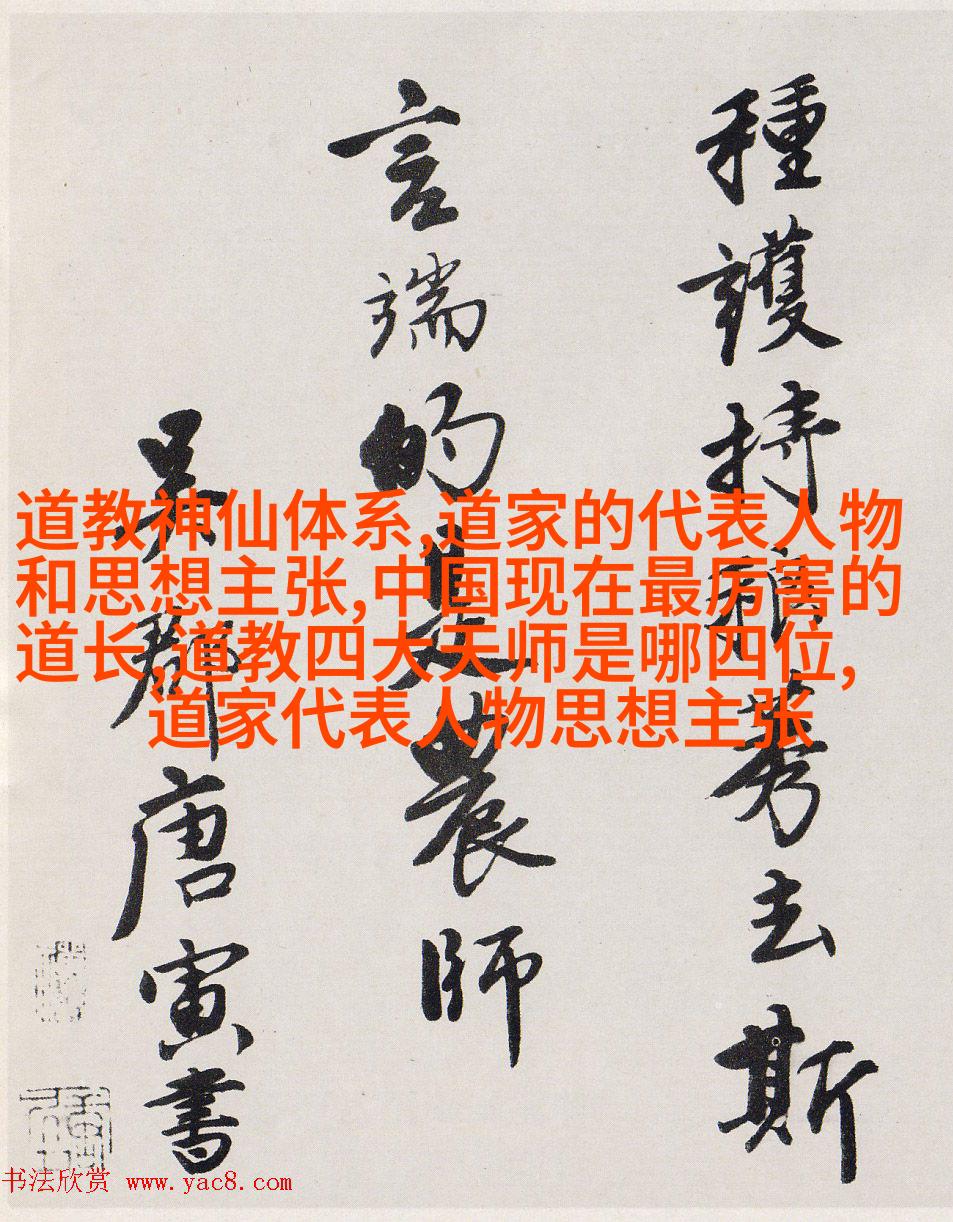 種護持稂莠去斯
言端的是農師
吳郡唐寅書
道教神仙体系,道家的代表人物
和思想主张,中国现在最厉害的
道长,道教四大天师是哪四位,
道家代表人物思想主张
书法欣赏 www.yac8.com